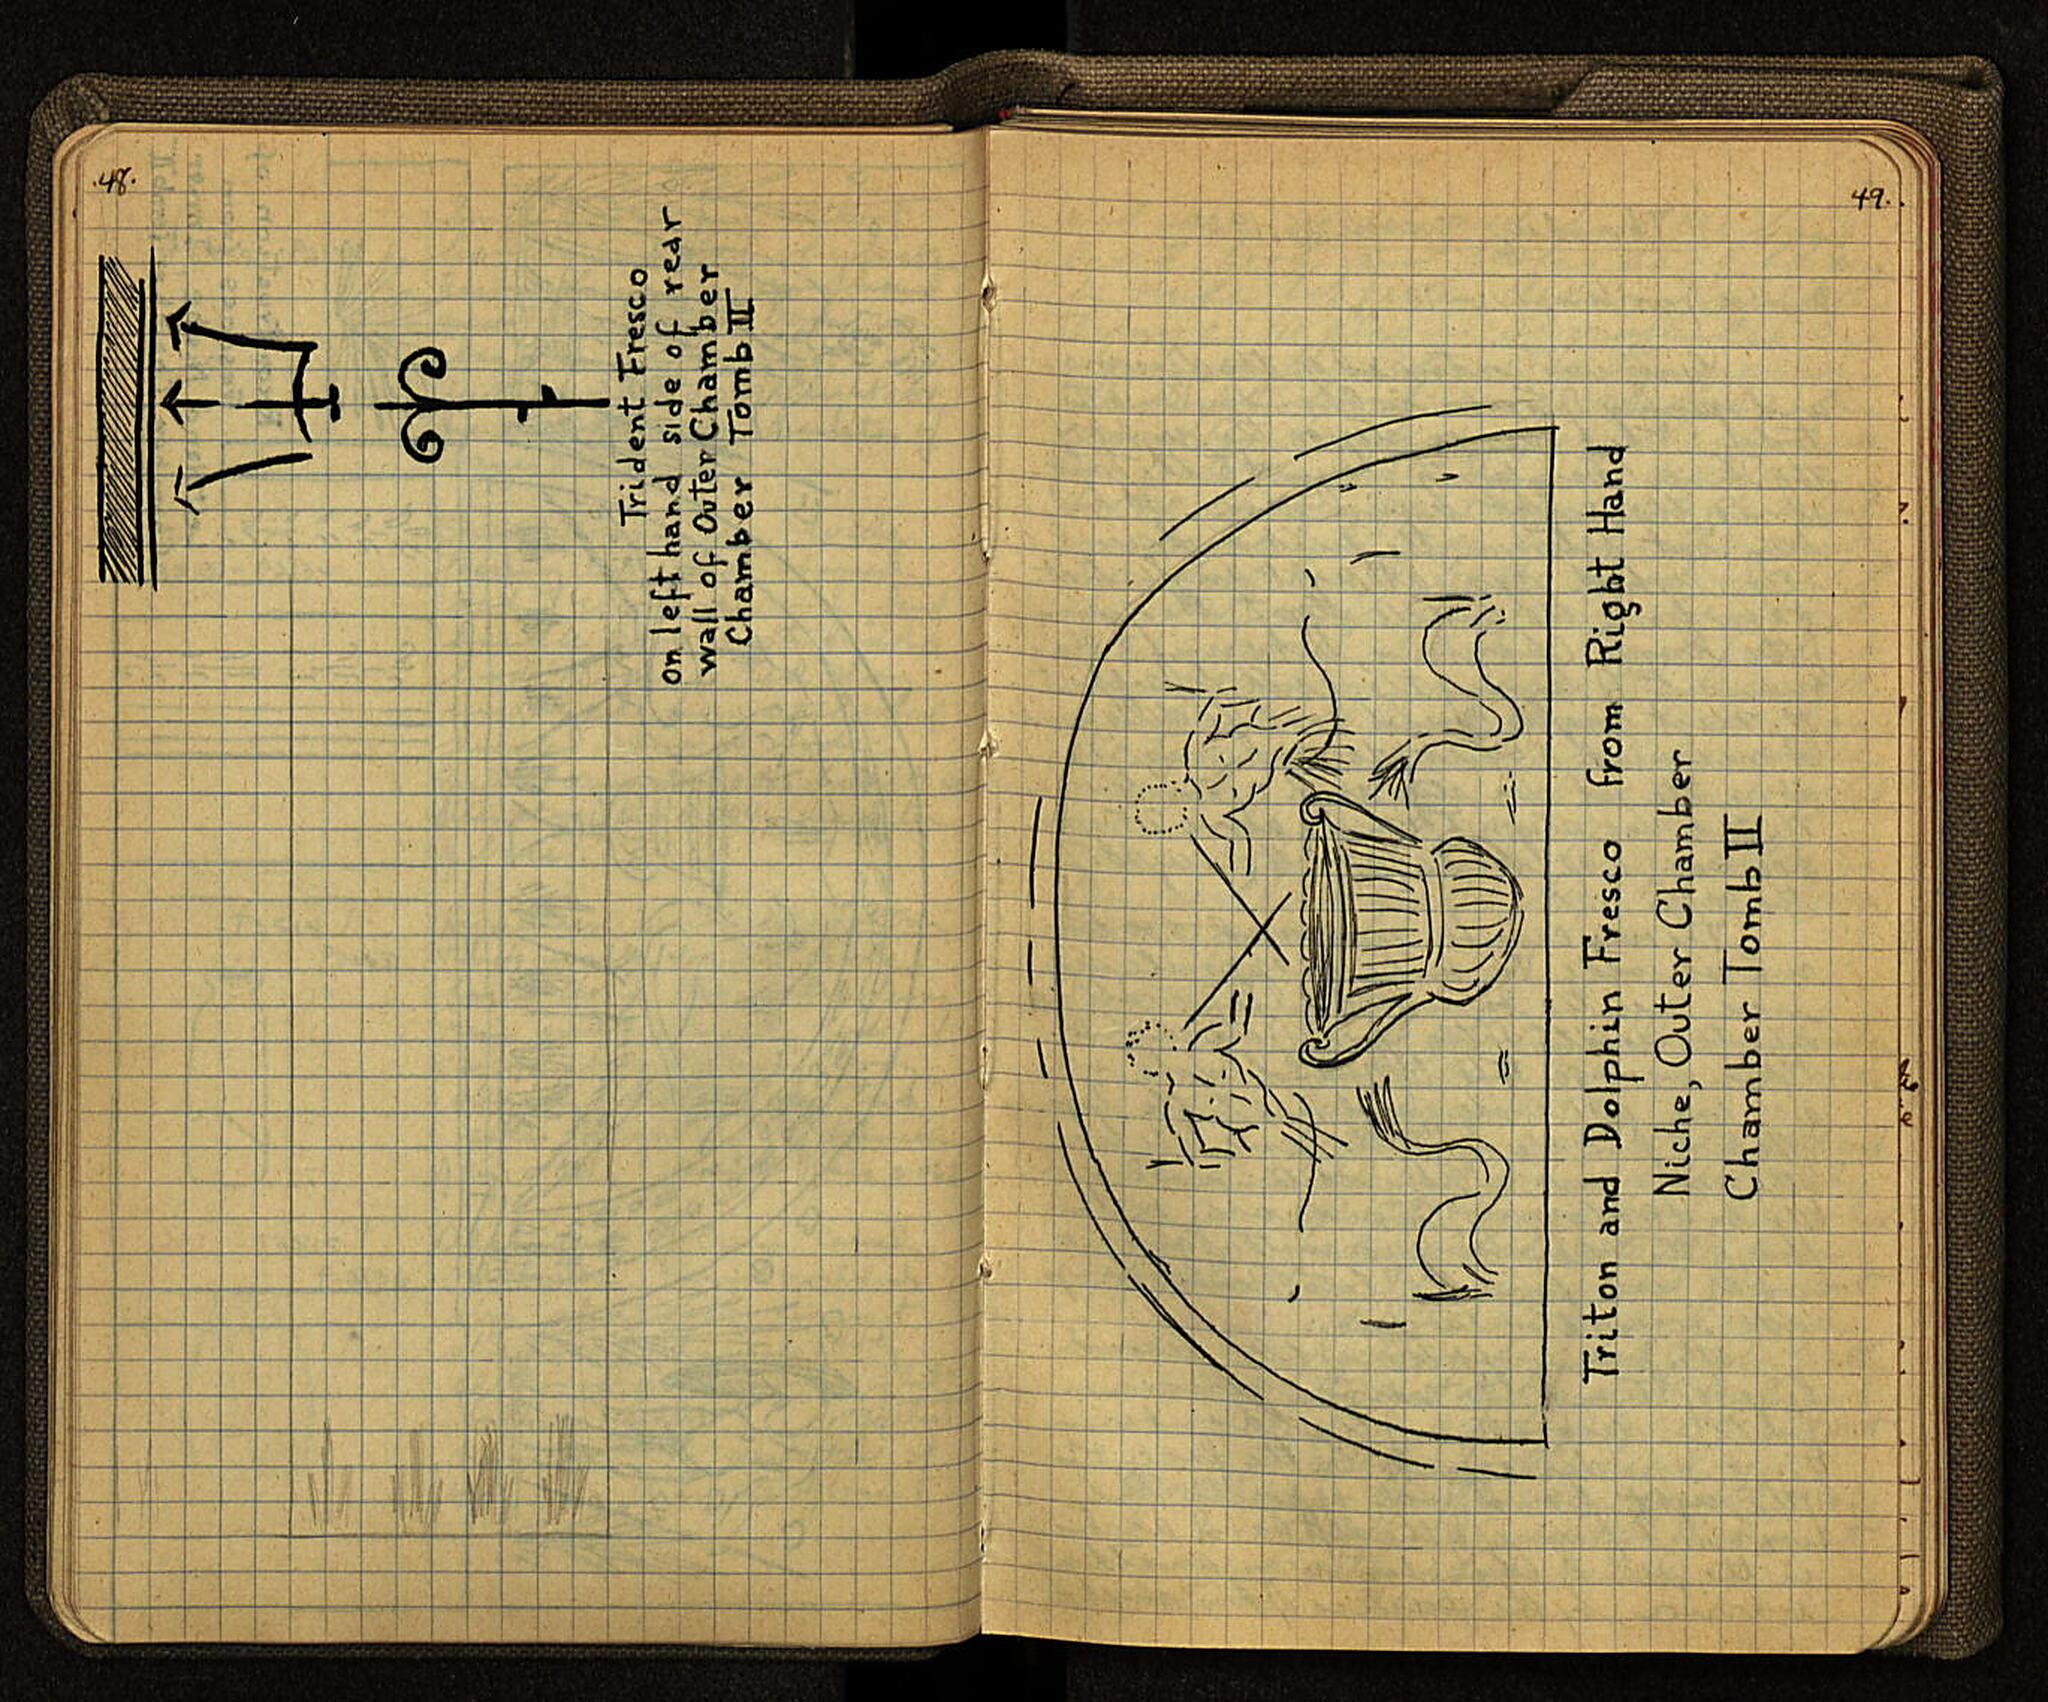 .48.
Trident Fresco
on left hand side of rear
wall of Outer Chamber
Chamber Tomb II
49.
Triton and Dolphin Fresco from Right Hand
Niche, Outer Chamber
Chamber Tomb II